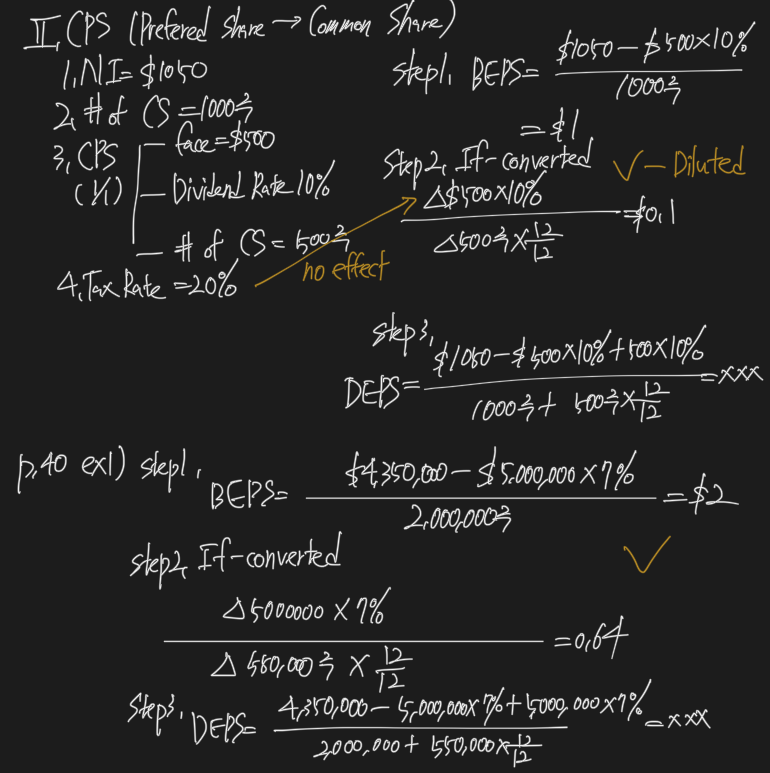 II, CPS (Prefered share → Common Share)
1, NI = $1050
2, # of CS = 1000주
3, CPS (1/1)
face = $500
Dividend Rate 10%
# of CS = 500주
4, Tax Rate = 20%
no effect
step1, BEPS = $1050 - $500 × 10%
1000주
= $1
Step2, If-converted
✓ - Diluted
△$500 × 10%
△500주 × 12/12
= $0.1
step3,
DEPS = $1050 - $500 × 10% + 500 × 10%
1000주 + 500주 × 12/12
= xxx
p.40 ex1) step1,
BEPS = $4,350,000 - $5,000,000 × 7%
2,000,000주
= $2
step2, If-converted
✓
△5000000 × 7%
△550,000주 × 12/12
= 0.64
step3,
DEPS = 4,350,000 - 5,000,000 × 7% + 5,000,000 × 7%
2,000,000 + 550,000 × 12/12
= xxx